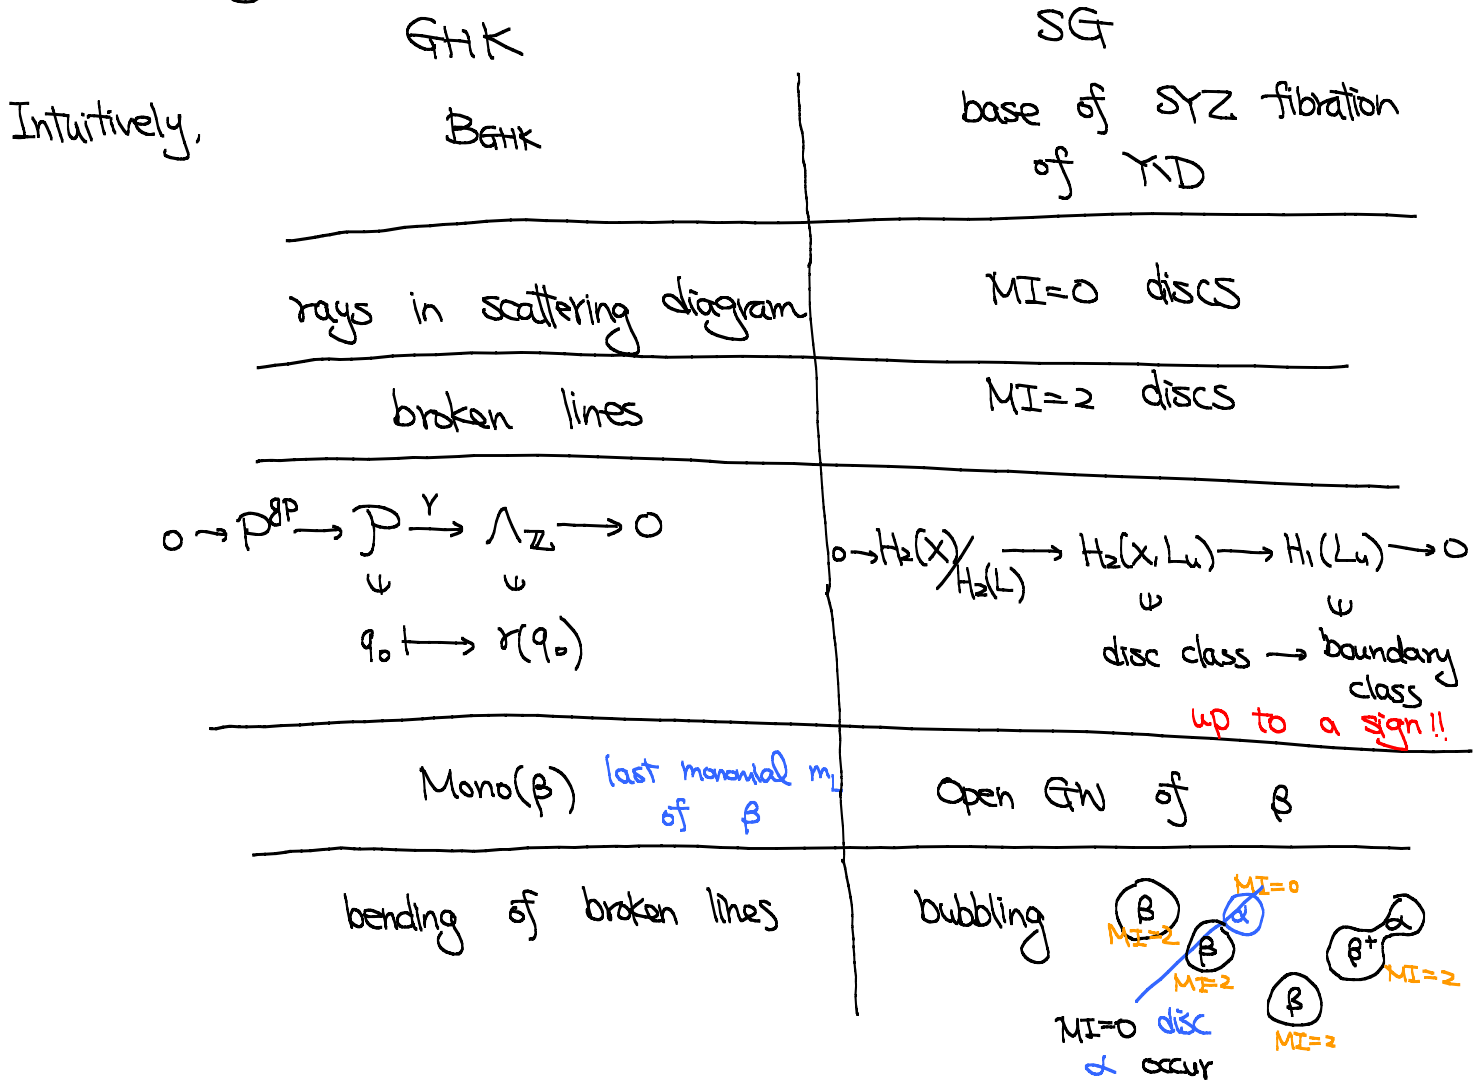 GHK SG
Intuitively, B_GHK base of SYZ fibration
of Y\D
rays in scattering diagram MI=0 discs
broken lines MI=2 discs
0 → P^gp → P —r→ Λ_ℤ → 0 0 → H₂(X)/H₂(L) → H₂(X, Lᵤ) → H₁(Lᵤ) → 0
ψ ψ ψ ψ
q₀ ↦ r(q₀) disc class → boundary
class
up to a sign!!
Mono(β) last monomial m_L
of β
Open GW of β
bending of broken lines bubbling
β MI=2
β MI=2 α MI=0
MI=0 disc
α occur
β MI=2
β + α MI=2